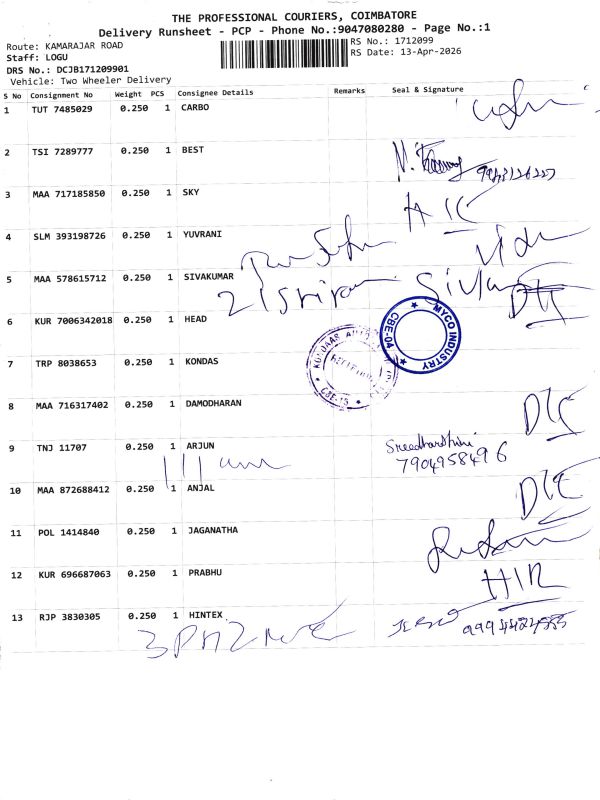 THE PROFESSIONAL COURIERS, COIMBATORE
Delivery Runsheet - PCP - Phone No.:9047080280 - Page No.:1
Route: KAMARAJAR ROAD
RS No.: 1712099
Staff: LOGU
RS Date: 13-Apr-2026
DRS No.: DCJB171209901
Vehicle: Two Wheeler Delivery
S No Consignment No Weight PCS Consignee Details Remarks Seal & Signature
1 TUT 7485029 0.250 1 CARBO
2 TSI 7289777 0.250 1 BEST
3 MAA 717185850 0.250 1 SKY
4 SLM 393198726 0.250 1 YUVRANI
5 MAA 578615712 0.250 1 SIVAKUMAR Siva
6 KUR 7006342018 0.250 1 HEAD
MYCO INDUSTRY
CBE-04
7 TRP 8038653 0.250 1 KONDAS
8 MAA 716317402 0.250 1 DAMODHARAN
9 TNJ 11707 0.250 1 ARJUN Sreedharshini
7904958496
10 MAA 872688412 0.250 1 ANJAL
11 POL 1414840 0.250 1 JAGANATHA
12 KUR 696687063 0.250 1 PRABHU
13 RJP 3830305 0.250 1 HINTEX